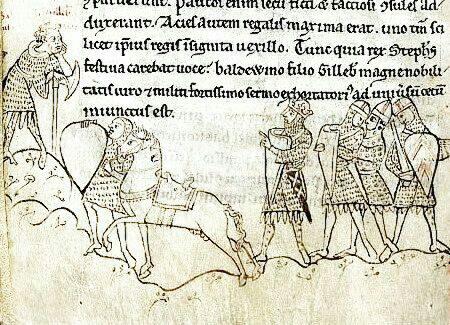 Paucos enim secū ficti & factiosi ꝯsules ad
duxerant. Acies autem regalis maxima erat. uno tm̄ sci
licet ipsius regis insignita uexillo. Tunc quia rex Stephs
festiua carebat uoce: baldewino filio Gilleb magne nobili
tatis uiro & militi fortissimo sermo exhortatori' ad uniuersū cetū
iniunctus est.